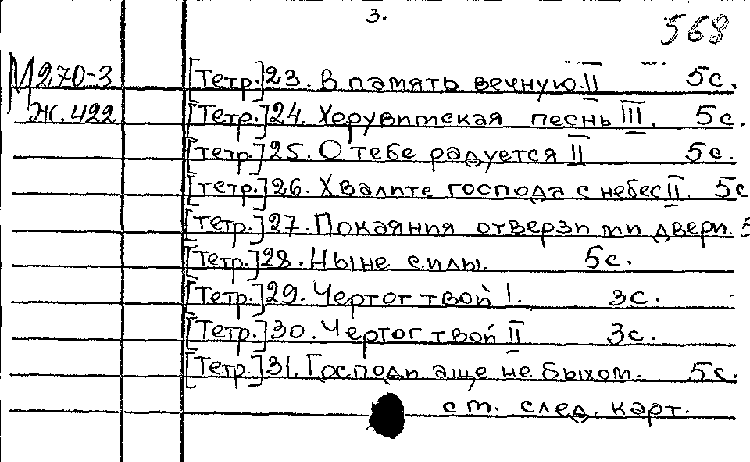 3.
568
М270-3 [Тетр.]23. В память вечную II 5с.
Ж.422 [Тетр.]24. Херувимская песнь III. 5с.
[Тетр.]25. О тебе радуется II 5с.
[Тетр.]26. Хвалите господа с небес II. 5с
[Тетр.]27. Покаяния отверзи ми двери. 5
[Тетр.]28. Ныне силы. 5с.
[Тетр.]29. Чертог твой I. 3с.
[Тетр.]30. Чертог твой II 3с.
[Тетр.]31. Господи аще не быхом. 5с.
см. след. карт.